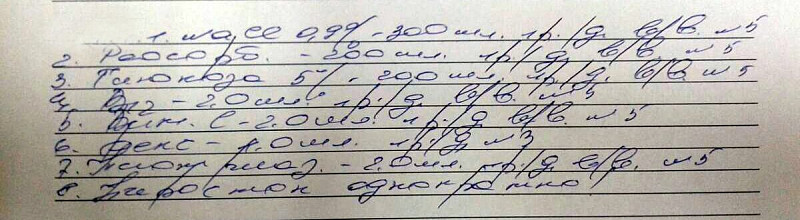 1. NaCl 0,9% - 300 мл. 1р./д. в/в. №5
2. Реосорб. - 200 мл. 1р/д в/в №5
3. Глюкоза 5% - 200 мл. 1р./д. в/в. №5
4. - 2.0 мл. 1р./д. в/в. №5
5. Вит. С - 2.0 мл. 1р./д в/в. №5
6. Декс - 1.0 мл. 1р./д №3
7. - 2.0 мл. 1р./д в/в. №5
8. однократно.